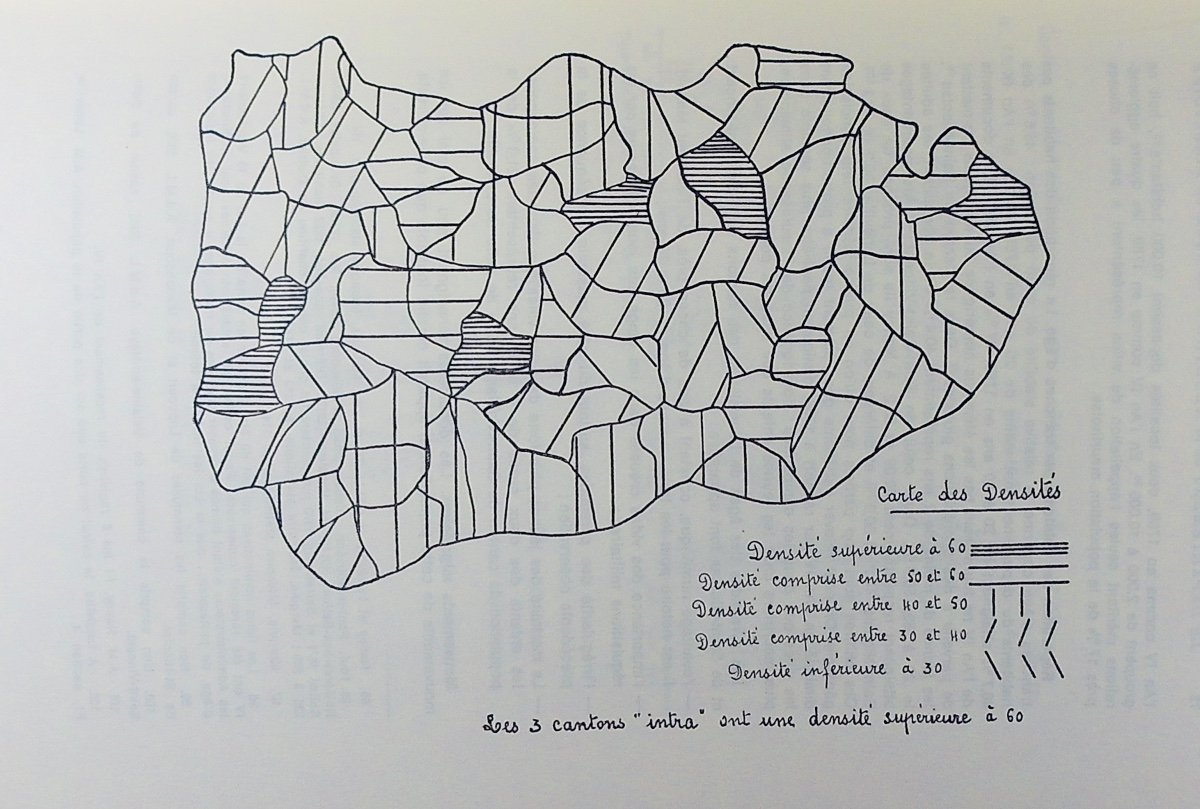 Carte des Densités
Densité supérieure à 60
Densité comprise entre 50 et 60
Densité comprise entre 40 et 50
Densité comprise entre 30 et 40
Densité inférieure à 30
Les 3 cantons "intra" ont une densité supérieure à 60